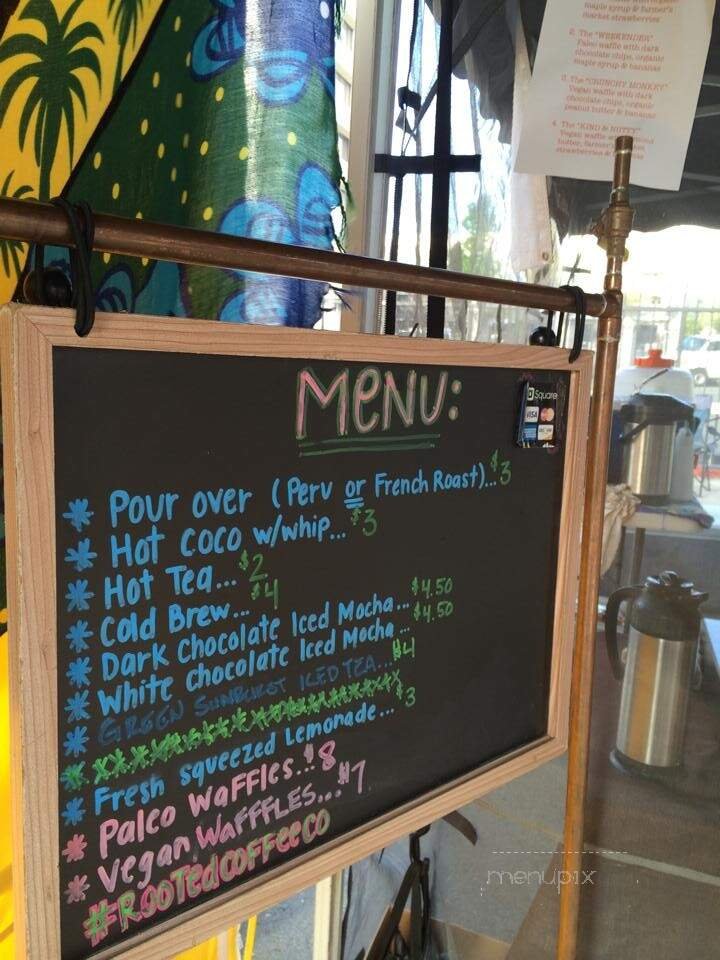 maple syrup & farmer's
market strawberries
2. The "WEEKENDER"
Paleo waffle with dark
chocolate chips, organic
maple syrup & bananas
3. The "CRUNCHY MONKEY"
Vegan waffle with dark
chocolate chips, organic
peanut butter & bananas
4. The "KIND & NUTTY"
Vegan waffle
butter, farmer's
strawberries &
MENU:
Square
VISA
* Pour over (Peru or French Roast)...$3
* Hot coco w/whip...$3
* Hot Tea...$2
* Cold Brew...$4
* Dark Chocolate Iced Mocha...$4.50
* White chocolate Iced Mocha...$4.50
* GREEN SUNBURST ICED TEA...$4
* Fresh squeezed Lemonade...$3
* Palco Waffles...$8
* Vegan Wafffles...$7
#RootedcoffeeCO
menupix